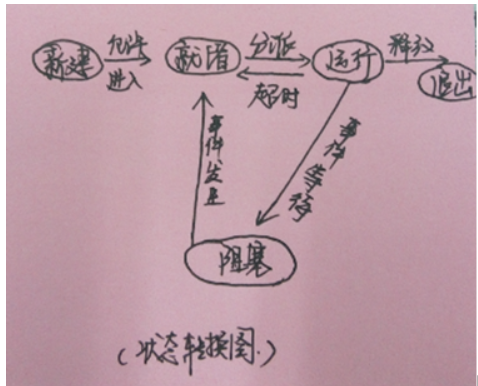 新建
允许
进入
就绪
分派
超时
运行
释放
退出
事件发生
事件等待
阻塞
(状态转换图.)